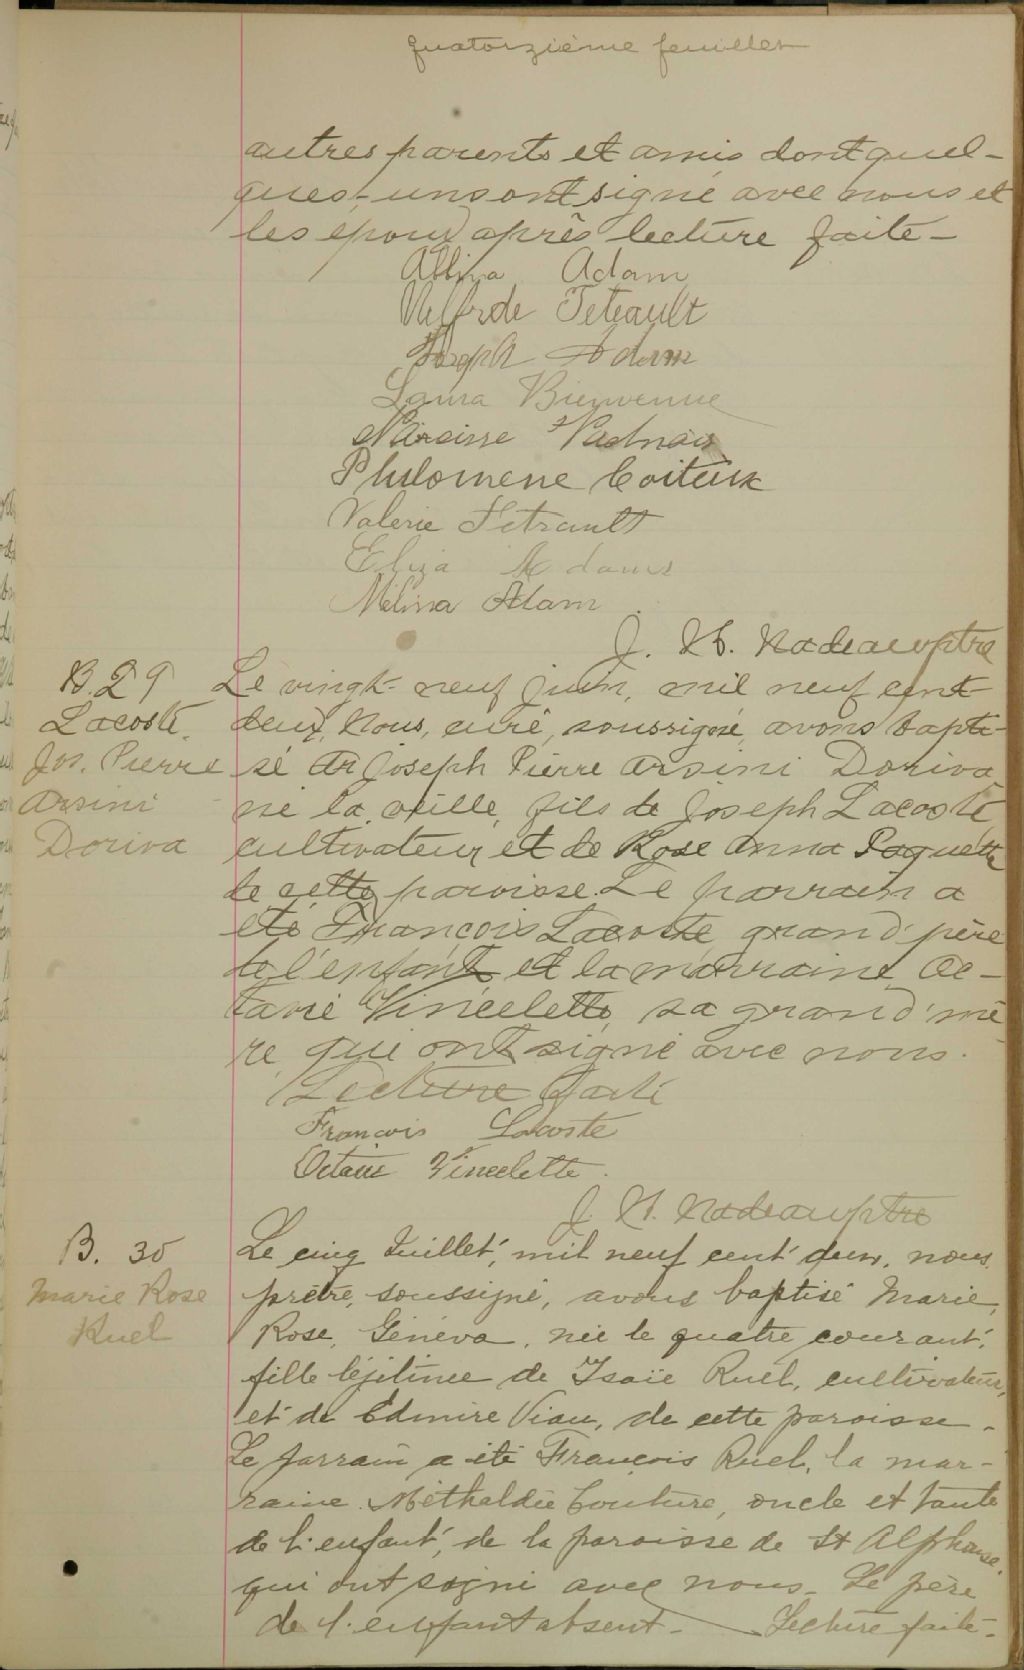 quatorzième feuillet
autres parents et amis dont quel-
ques-uns ont signé avec nous et
les époux après lecture faite-
Albina Adam
Wilfrde Teteault
Joseph Adam
Laura Bienvenue
Narcisse Padnais
Philomene Coiteux
Valerie Tetrault
Eliza Adams
Mélina Adam
J. H. Nadeau ptre
B. 29
Lacoste
Jos. Pierre
Arsini
Doriva
Le vingt-neuf juin, mil neuf cent
deux, Nous, curé, soussigné, avons bapti-
sé Joseph Pierre Arsini Doriva
né la veille, fils de Joseph Lacoste
cultivateur et de Rose Anna Paquette
de cette paroisse. Le parrain a
été François Lacoste grand'père
de l'enfant et la marraine Oc-
tavie Vincelette, sa grand'mè-
re, qui ont signé avec nous.
Lecture faite
François Lacoste
Octavie Vincelette.
J. H. Nadeau ptre
B. 30
Marie Rose
Ruel
Le cinq Juillet, mil neuf cent deux, nous,
prêtre, soussigné, avons baptisé Marie,
Rose, Généva, née le quatre courant,
fille légitime de Isaïe Ruel, cultivateur,
et de Edmire Viau, de cette paroisse.
Le parrain a été François Ruel, la mar-
raine Méthaldée Couture, oncle et tante
de l'enfant, de la paroisse de St Alphonse,
qui ont signé avec nous. Le père
de l'enfant absent- Lecture faite-